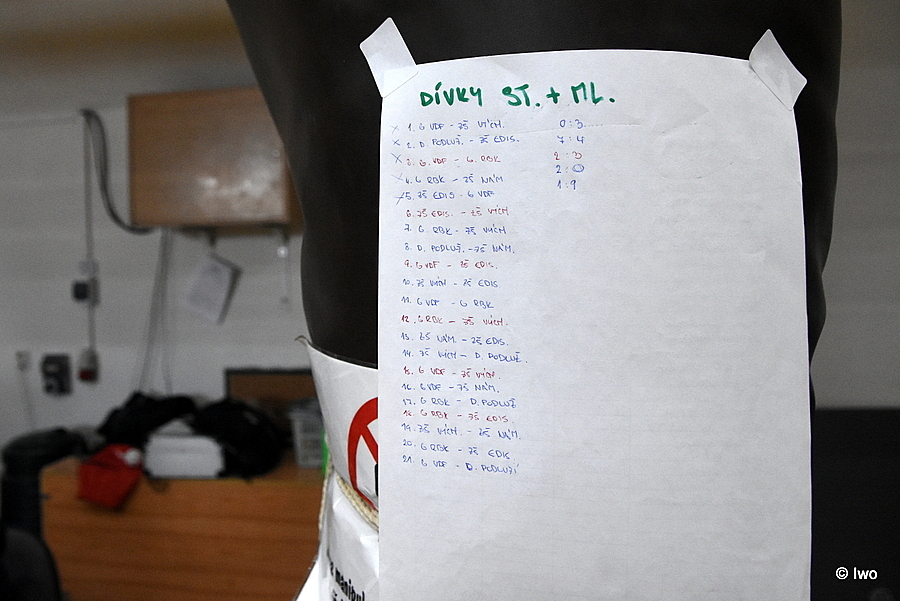 DÍVKY ST. + ML.
x 1. G VDF - ZŠ VÝCH. 0:3
x 2. D. PODLUŽ. - ZŠ EDIS. 7:4
x 3. G. VDF - G. RBK 2:3
x 4. G RBK - ZŠ NÁM 2:0
x 5. ZŠ EDIS - G VDF 1:9
6. ZŠ EDIS. - ZŠ VÝCH
7. G RBK - ZŠ VÝCH
8. D. PODLUŽ. - ZŠ NÁM.
9. G VDF - ZŠ EDIS.
10. ZŠ VÝCH - ZŠ EDIS
11. G VDF - G RBK
12. G RBK - ZŠ VÝCH.
13. ZŠ NÁM. - ZŠ EDIS.
14. ZŠ VÝCH - D. PODLUŽ.
15. G VDF - ZŠ VÝCH.
16. G VDF - ZŠ NÁM.
17. G RBK - D. PODLUŽ
18. G RBK - ZŠ EDIS
19. ZŠ VÝCH. - ZŠ NÁM.
20. G RBK - ZŠ EDIS
21. G VDF - D. PODLUŽÍ
© Iwo